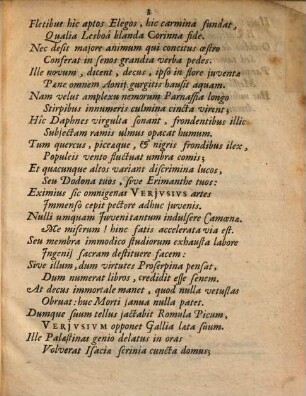 2
Fletibus hic aptos Elegos, hic carmina fundat,
Qualia Lesboâ blanda Corinna fide.
Nec desit majore animum qui concitus œstro
Conferat in senos grandia verba pedes.
Ille novum, dicent, decus, ipso in flore juventæ
Pæne omnem Aonij gurgitis hausit aquam.
Nam velut amplexu nemorum Parnassia longo
Stirpibus innumeris culmina cincta virent;
Hic Daphnes virgulta sonant, frondentibus illic
Subjectam ramis ulmus opacat humum.
Tum quercus, piceæque, & nigris frondibus ilex,
Populeis vento fluctuat umbra comis;
Et quacunque altos variant discrimina lucos,
Seu Dodona tuos, sive Erimanthe tuos:
Eximius sic omnigenas VERJUSIUS artes
Immenso cepit pectore adhuc juvenis.
Nulli umquam Juvenitantum indulsere Camœnæ.
Me miserum! hinc fatis accelerata via est.
Seu membra immodico studiorum exhausta labore
Ingenij sacram destituere facem:
Sive illum, dum virtutes Proserpina pensat,
Dum numerat libros, credidit esse senem.
At decus immortale manet, quod nulla vetustas
Obruat: huc Morti janua nulla patet.
Dumque suum tellus jactabit Romula Picum,
VERJUSIUM opponet Gallia læta suum.
Ille Palæstinas genio delatus in oras
Volverat Isacia scrinia cuncta domus;